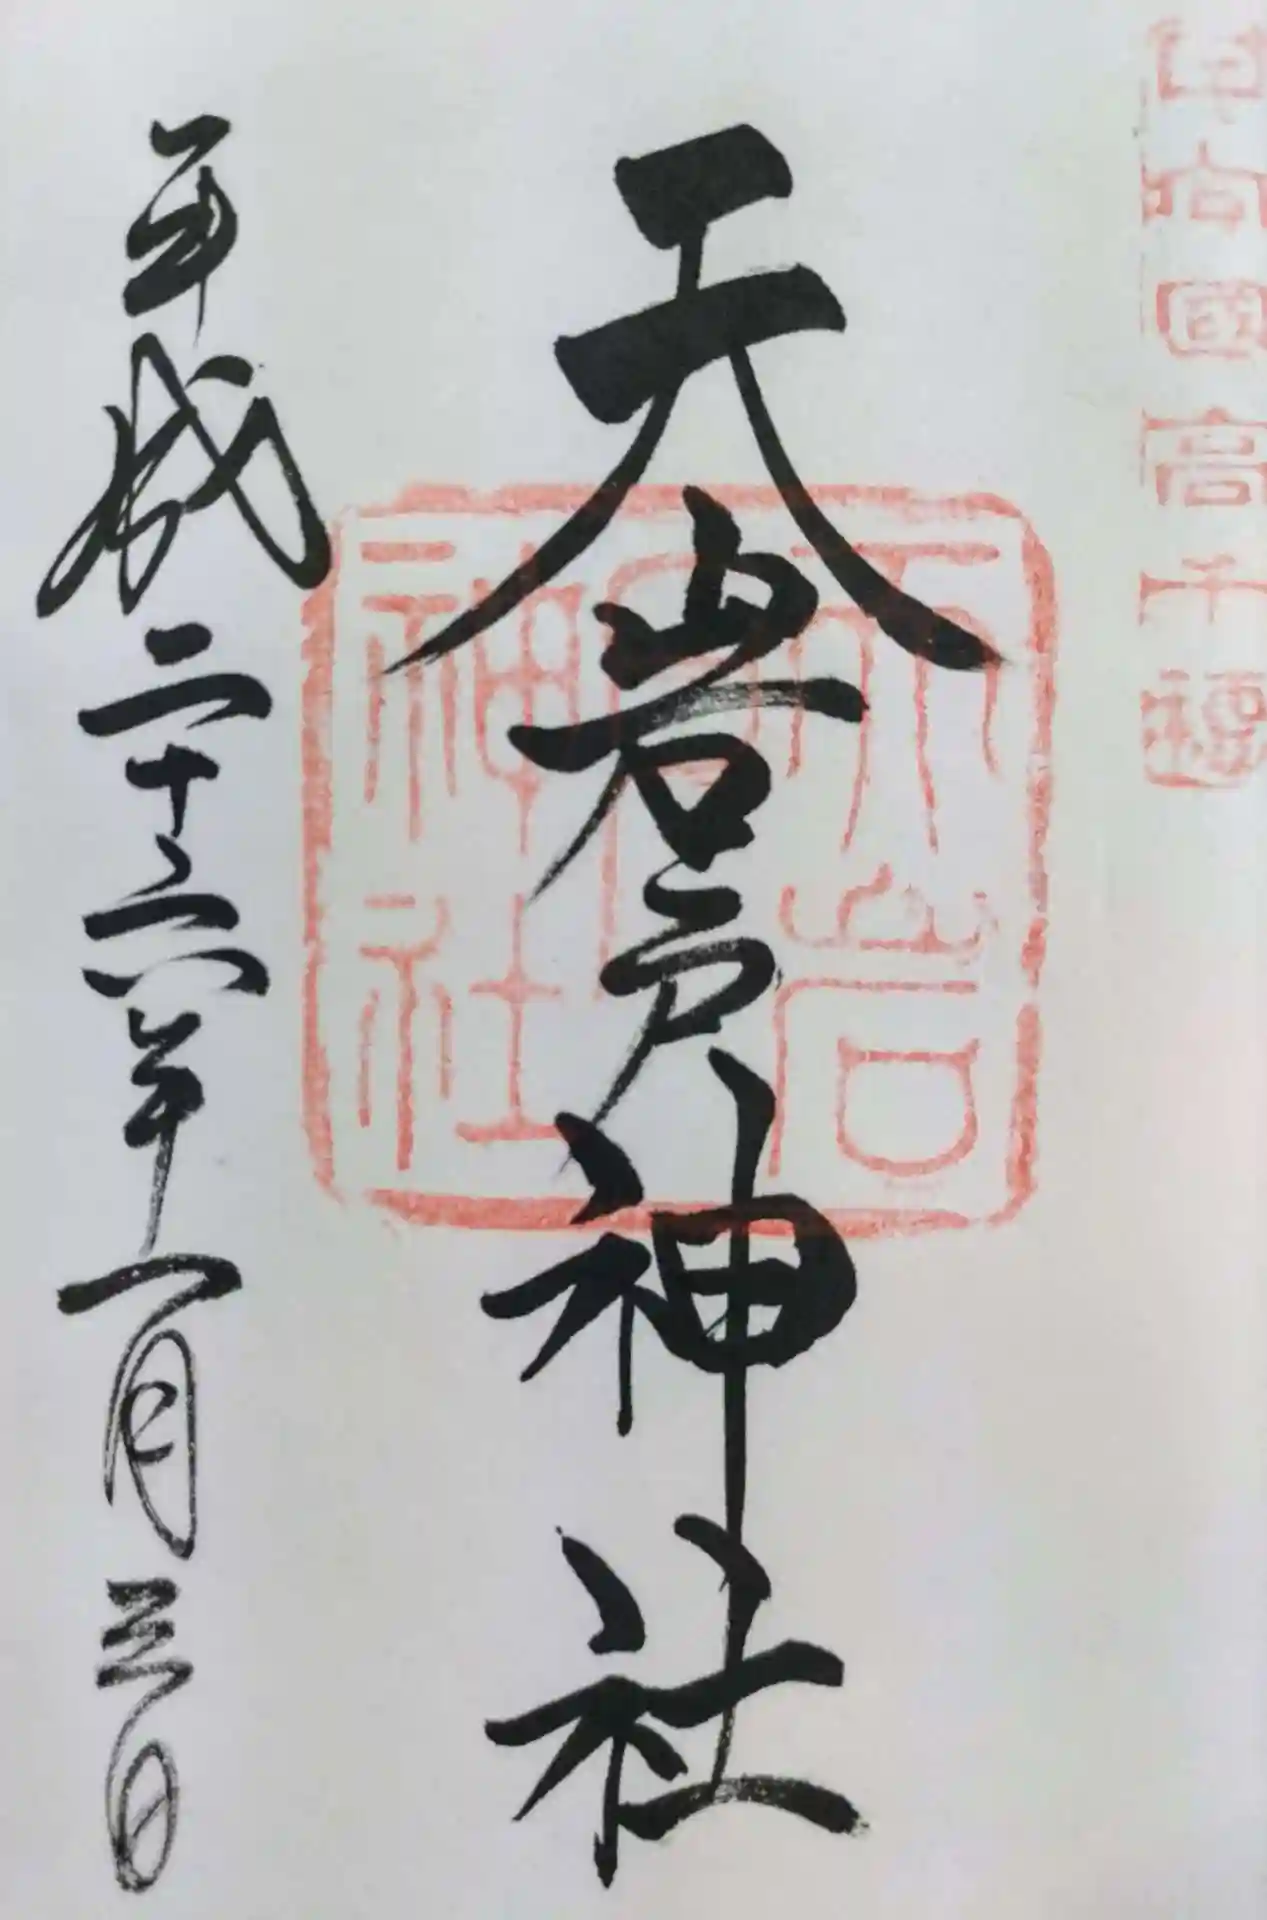 日向國高千穂
天岩戸神社
天岩戸神社
平成二十六年一月三日